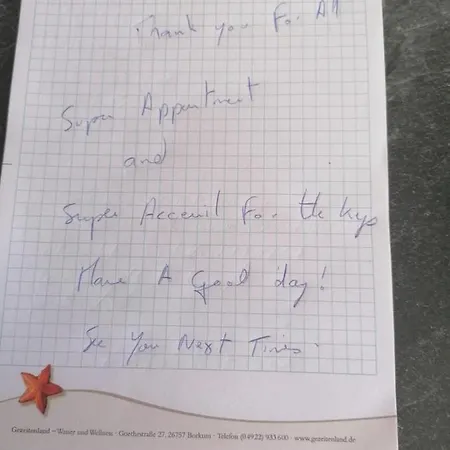 Thank you For All
Super Appartment
and
Super Acceuil For the Keys
Have A Good day!
See You Next Times
Gezeitenland – Wasser und Wellness · Goethestraße 27, 26757 Borkum · Telefon (049 22) 933 600 · www.gezeitenland.de